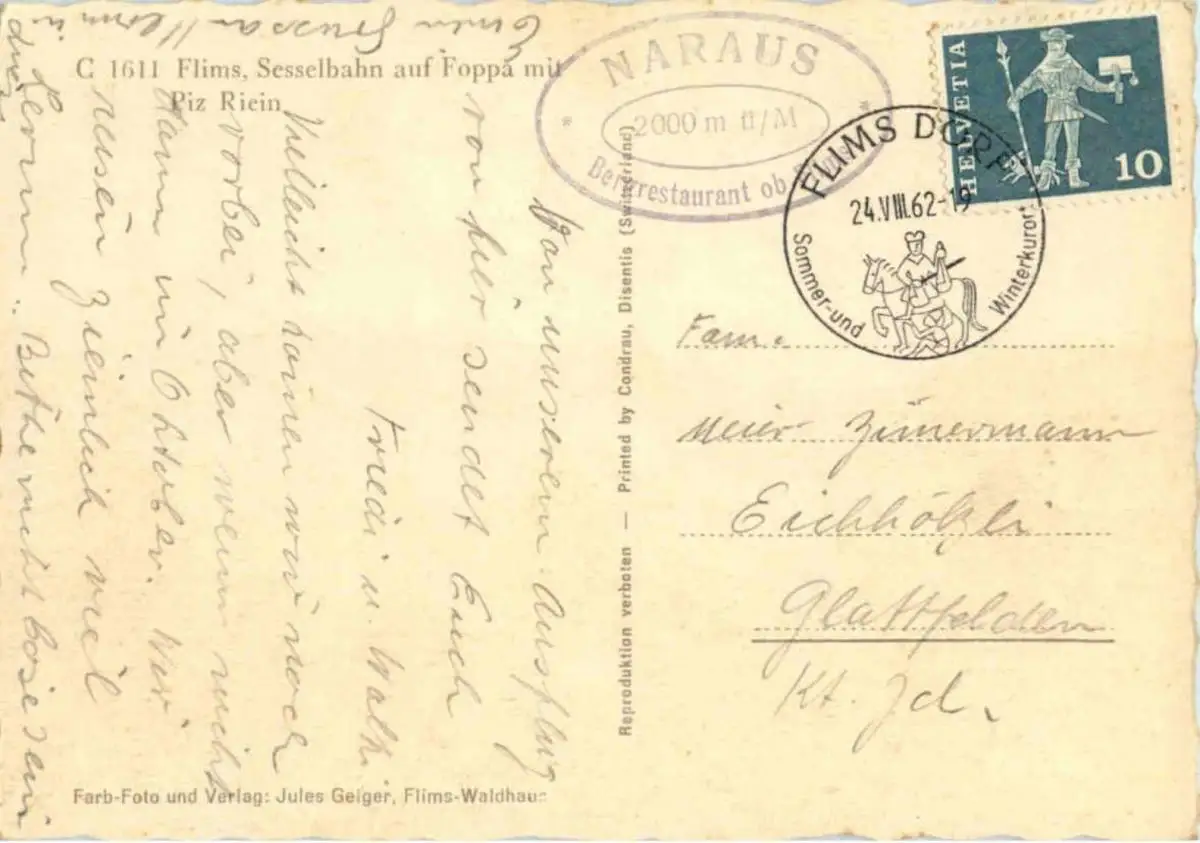 C 1611 Flims, Sesselbahn auf Foppa mit
Piz Riein
Von unserem Ausflug
von hier sendet Euch
Einen Gruss
Fredi u. Walti
Vielleicht kommen wir noch
vorbei, aber wenn nicht
dann im Oktober. Wir
müssen ziemlich viel
lernen. Bitte nicht böse sein
Farb-Foto und Verlag: Jules Geiger, Flims-Waldhaus
Reproduktion verboten — Printed by Condrau, Disentis (Switzerland)
NARAUS
* 2000 m ü/M *
Bergrestaurant ob Flims
FLIMS DORF
24.VIII.62-19
Sommer-und Winterkurort
HELVETIA
10
Fam.
Meier Zimermann
Eichhölzli
Glattfelden
Kt. Zch.